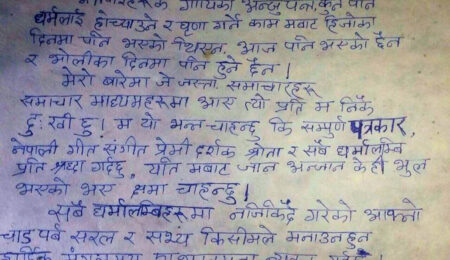 गायिका अन्जु पन्त, कुनै पनि
धर्मलाई होच्याउने र घृणा गर्ने काम मबाट हिजोका
दिनमा पनि भएको थिएन, आज पनि भएको छैन
र भोलीका दिनमा पनि हुने छैन।
मेरो बारेमा जे जस्ता समाचारहरू
समाचार माध्यमहरूमा आए त्यो प्रति म निकै
दुःखी छु। म यो भन्न चाहन्छु कि सम्पुर्ण पत्रकार,
नेपाली गीत संगीत प्रेमी दर्शक श्रोता र सबै धर्मालम्बि
प्रति श्रद्धा गर्दछु, यति मबाट जान अन्जान केही भुल
भएको भए क्षमा चाहन्छु।
सबै धर्मालम्बिहरूमा नजिकिँदै गरेको आफ्नो
चाड पर्व सरल र सभ्य किसीमले मनाउनुहुन